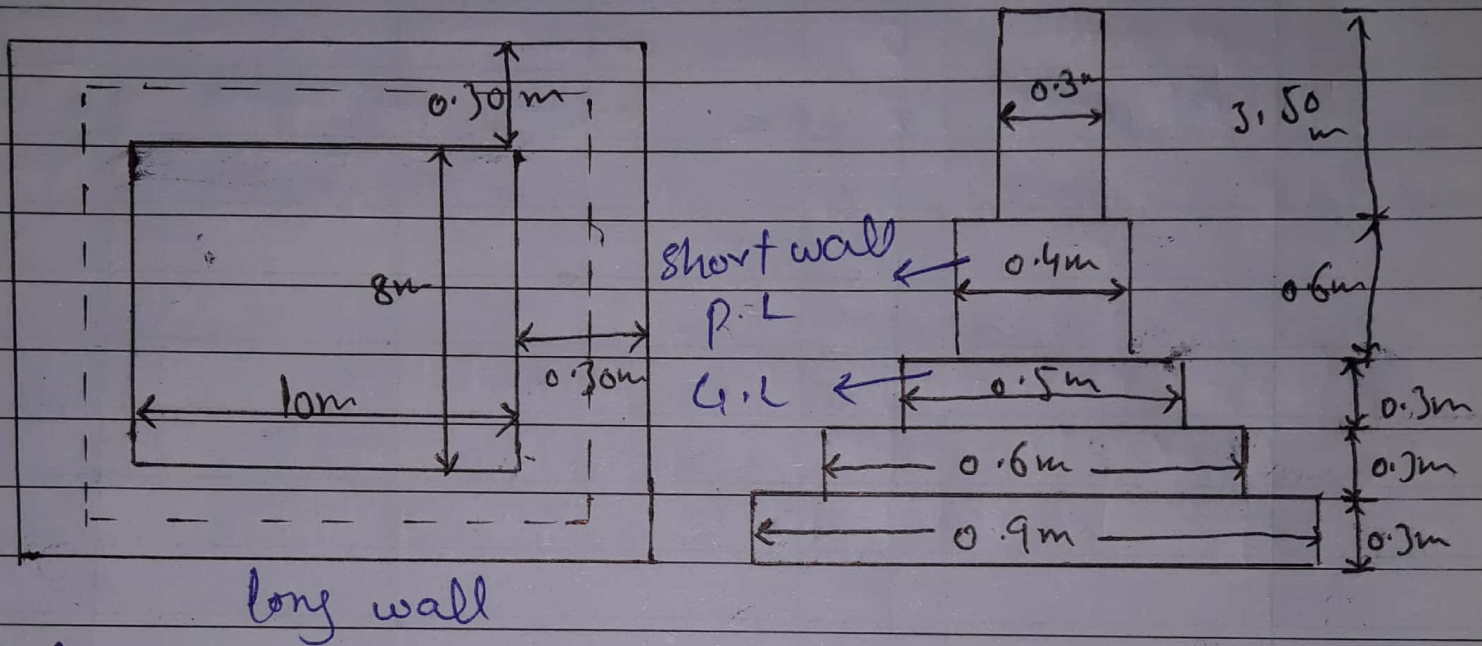 0.30 m
8m
0.30m
10m
long wall
short wall
P.L
G.L
0.3m
3.50 m
0.4m
0.6m
0.5m
0.3m
0.6m
0.3m
0.9m
0.3m